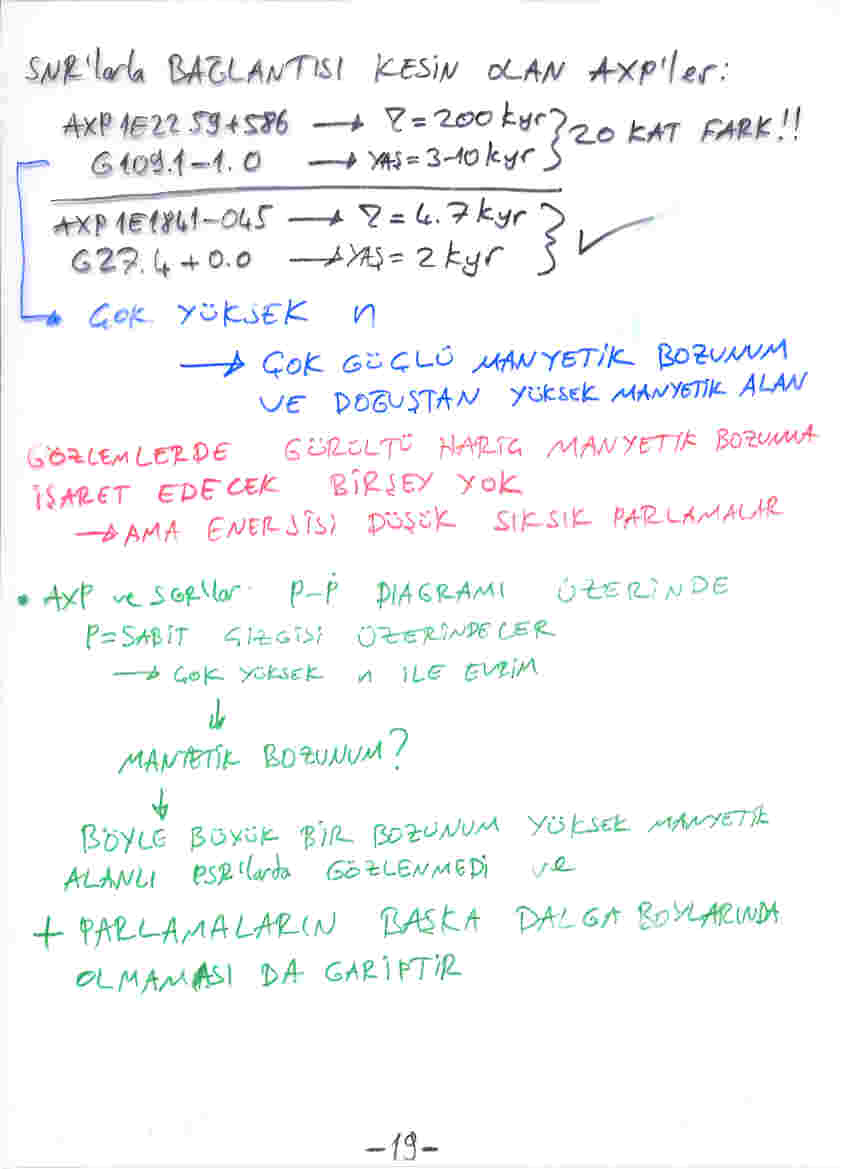 SNR'larla BAĞLANTISI KESİN OLAN AXP'ler:
AXP 1E2259+586 → τ = 200 kyr } 20 KAT FARK!!
G109.1-1.0 → YAŞ = 3-10 kyr
AXP 1E1841-045 → τ = 4.7 kyr } ✓
G27.4+0.0 → YAŞ = 2 kyr
→ ÇOK YÜKSEK n
→ ÇOK GÜÇLÜ MANYETİK BOZUNUM
VE DOĞUŞTAN YÜKSEK MANYETİK ALAN
GÖZLEMLERDE GÜRÜLTÜ HARİÇ MANYETİK BOZUNMA
İŞARET EDECEK BİRŞEY YOK
→ AMA ENERJİSİ DÜŞÜK SIK SIK PARLAMALAR
• AXP ve SGR'lar P-Ṗ DIAGRAMI ÜZERİNDE
P=SABİT ÇİZGİSİ ÜZERİNDELER
→ ÇOK YÜKSEK n İLE EVRİM
↓
MANYETİK BOZUNUM?
↓
BÖYLE BÜYÜK BİR BOZUNUM YÜKSEK MANYETİK
ALANLI PSR'larda GÖZLENMEDİ ve
+ PARLAMALARIN BAŞKA DALGA BOYLARINDA
OLMAMASI DA GARİPTİR
-19-